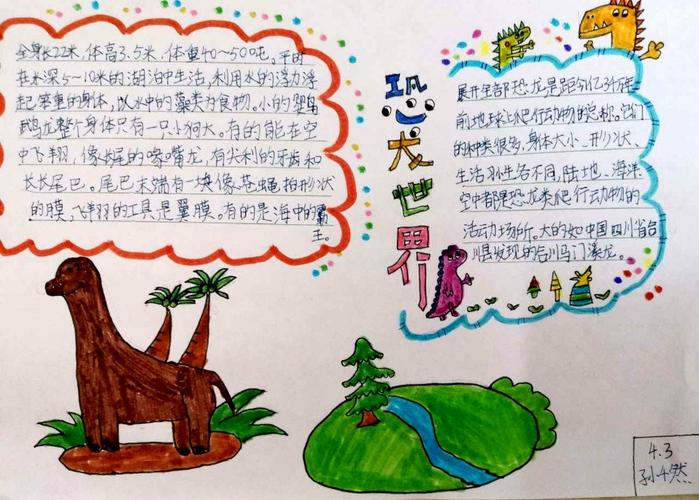 全身长22米,体高3.5米,体重40~50吨。平时
在水深5~10米的湖泊中生活,利用水的浮力浮
起笨重的身体,以水中的藻类为食物。小的
鹉龙整个身体只有一只小狗大。有的能在空
中飞翔,像长尾的喙嘴龙,有尖利的牙齿和
长长尾巴。尾巴末端有一块像苍蝇拍形状
的膜,飞翔的工具是翼膜。有的是海中的霸
王。
恐龙大世界
展开全部恐龙是距今1亿3千万年
前地球上爬行动物的总称。它们
的种类很多,身体大小、形状、
生活习性各不同,陆地、海洋、
空中都是恐龙类爬行动物的
活动场所。大的如中国四川省合
川县发现的合川马门溪龙。
4.3